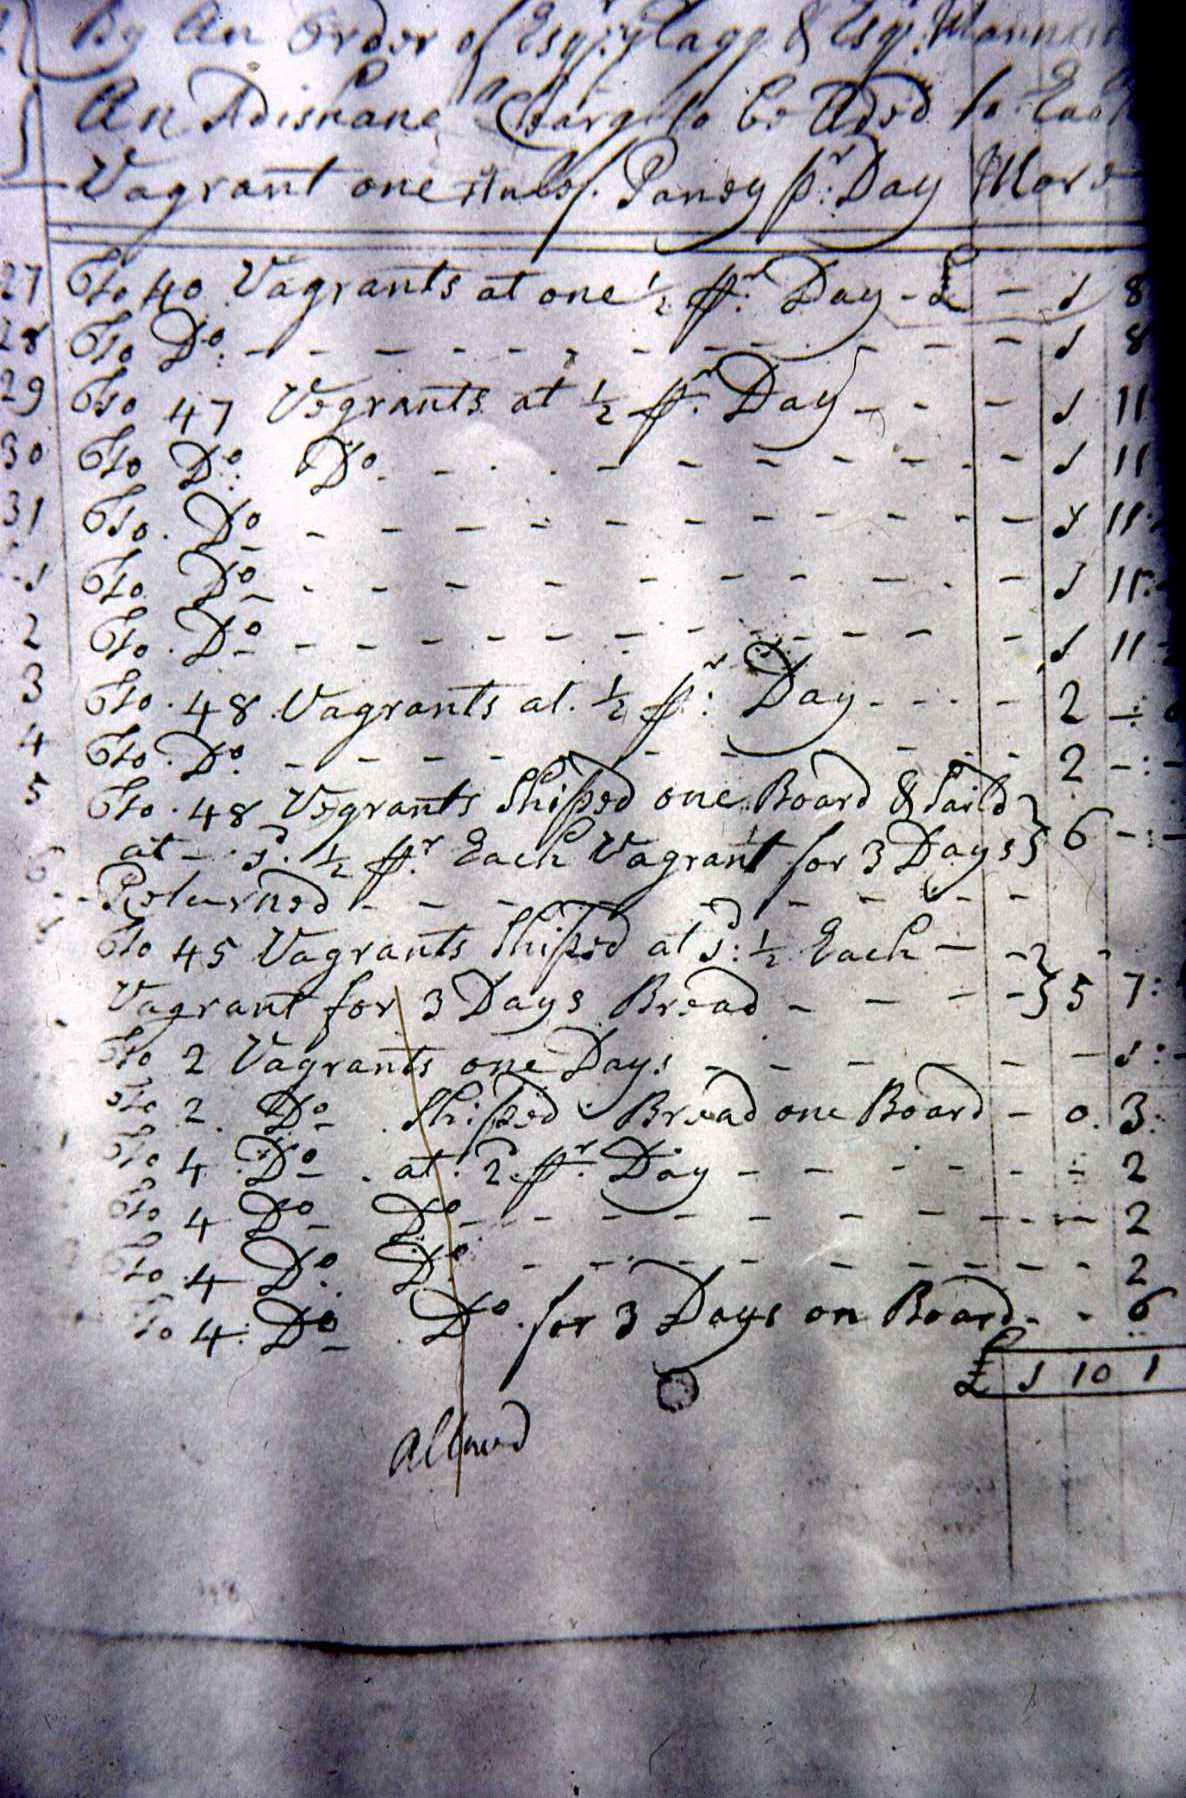 By An Order of Esqr. Flagg & Esqr. Mannin
An Adishanel Charg to be Aded to Each
Vagrant one Halef Paney pr. Day More
27 To 40 Vagrants at one ½ pr. Day - £ - 1 8
28 To Do. - - - - 1 8
29 To 47 Vegrants at ½ pr. Day - - - 1 11
30 To Do. Do. - - - - 1 11
31 To. Do - - - - 1 11
1 To Do - - - - 1 11
2 To. Do - - - - 1 11
3 To. 48 Vagrants at ½ pr. Day - - - 2 -
4 To. Do. - - - - 2 -
5 To. 48 Vegrants Shiped one Board & Saild
6 at - 1d. ½ pr. Each Vagrant for 3 Days } 6 - : -
Returned - - - -
To 45 Vagrants Shiped at 1d: ½ Each -
Vagrant for 3 Days Bread - - - } 5 7 :
To 2 Vagrants one Day. - - - - 1 : -
To 2. Do - Shiped Bread one Board - 0. 3:
To 4 Do - at. 2. pr. Day - - - - 2
To 4 Do - Do - - - - 2
To 4 Do. Do. - - - - 2
To 4. Do - Do. for 3 Days on Board - - 6
£ 1 10 1
Allowd